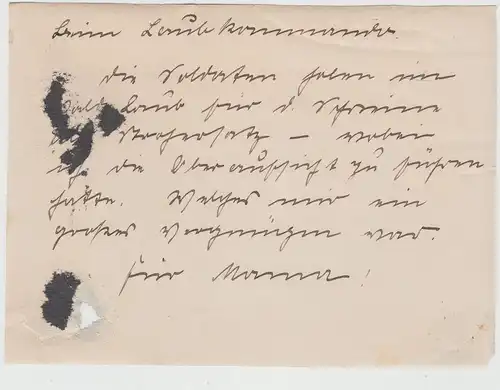 Beim Laubkommando.
Die Soldaten holen im
Wald Laub für d. Schweine
als Strohersatz – wobei
ich die Oberaufsicht zu führen
hatte. Welches mir ein
grosses Vergnügen war.
Für Mama!